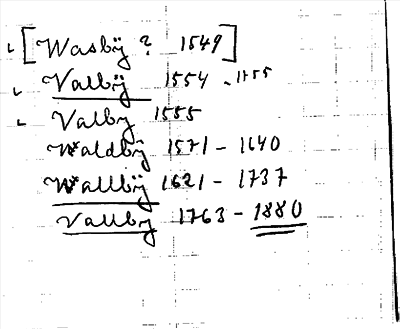 [Wasbÿ ? 1549]
Valbÿ 1554 - 1755
Valby 1555
Waldbÿ 1571 - 1640
Wallbÿ 1621 - 1737
Vallby 1763 - 1880